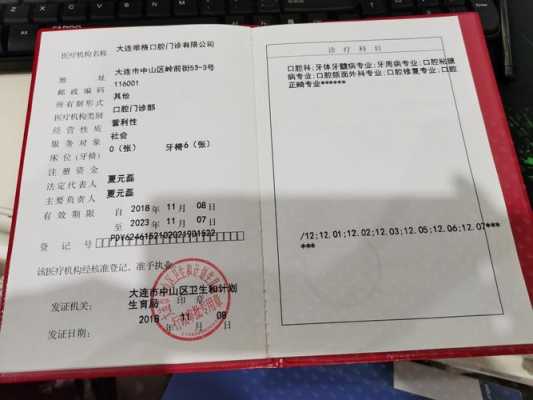 医疗机构名称 大连唯格口腔门诊有限公司
地 址 大连市中山区岭前街53-3号
邮政编码 116001
所有制形式 其他
医疗机构类别 口腔门诊部
经营性质 营利性
服务对象 社会
床位(牙椅) 0(张) 牙椅6(张)
注册资金
法定代表人 夏元磊
主要负责人 夏元磊
有效期限 自 2018 年 11 月 08 日
至 2023 年 11 月 07 日
登记号
该医疗机构经核准登记，准予执业
发证机关: 大连市中山区卫生和计划
生育局 印 章
发证日期: 2018 年 11 月 08 日
诊疗科目
口腔科;牙体牙髓病专业;牙周病专业;口腔粘膜
病专业;口腔颌面外科专业;口腔修复专业;口腔
正畸专业******
/12;12.01;12.02;12.03;12.05;12.06;12.07***
***